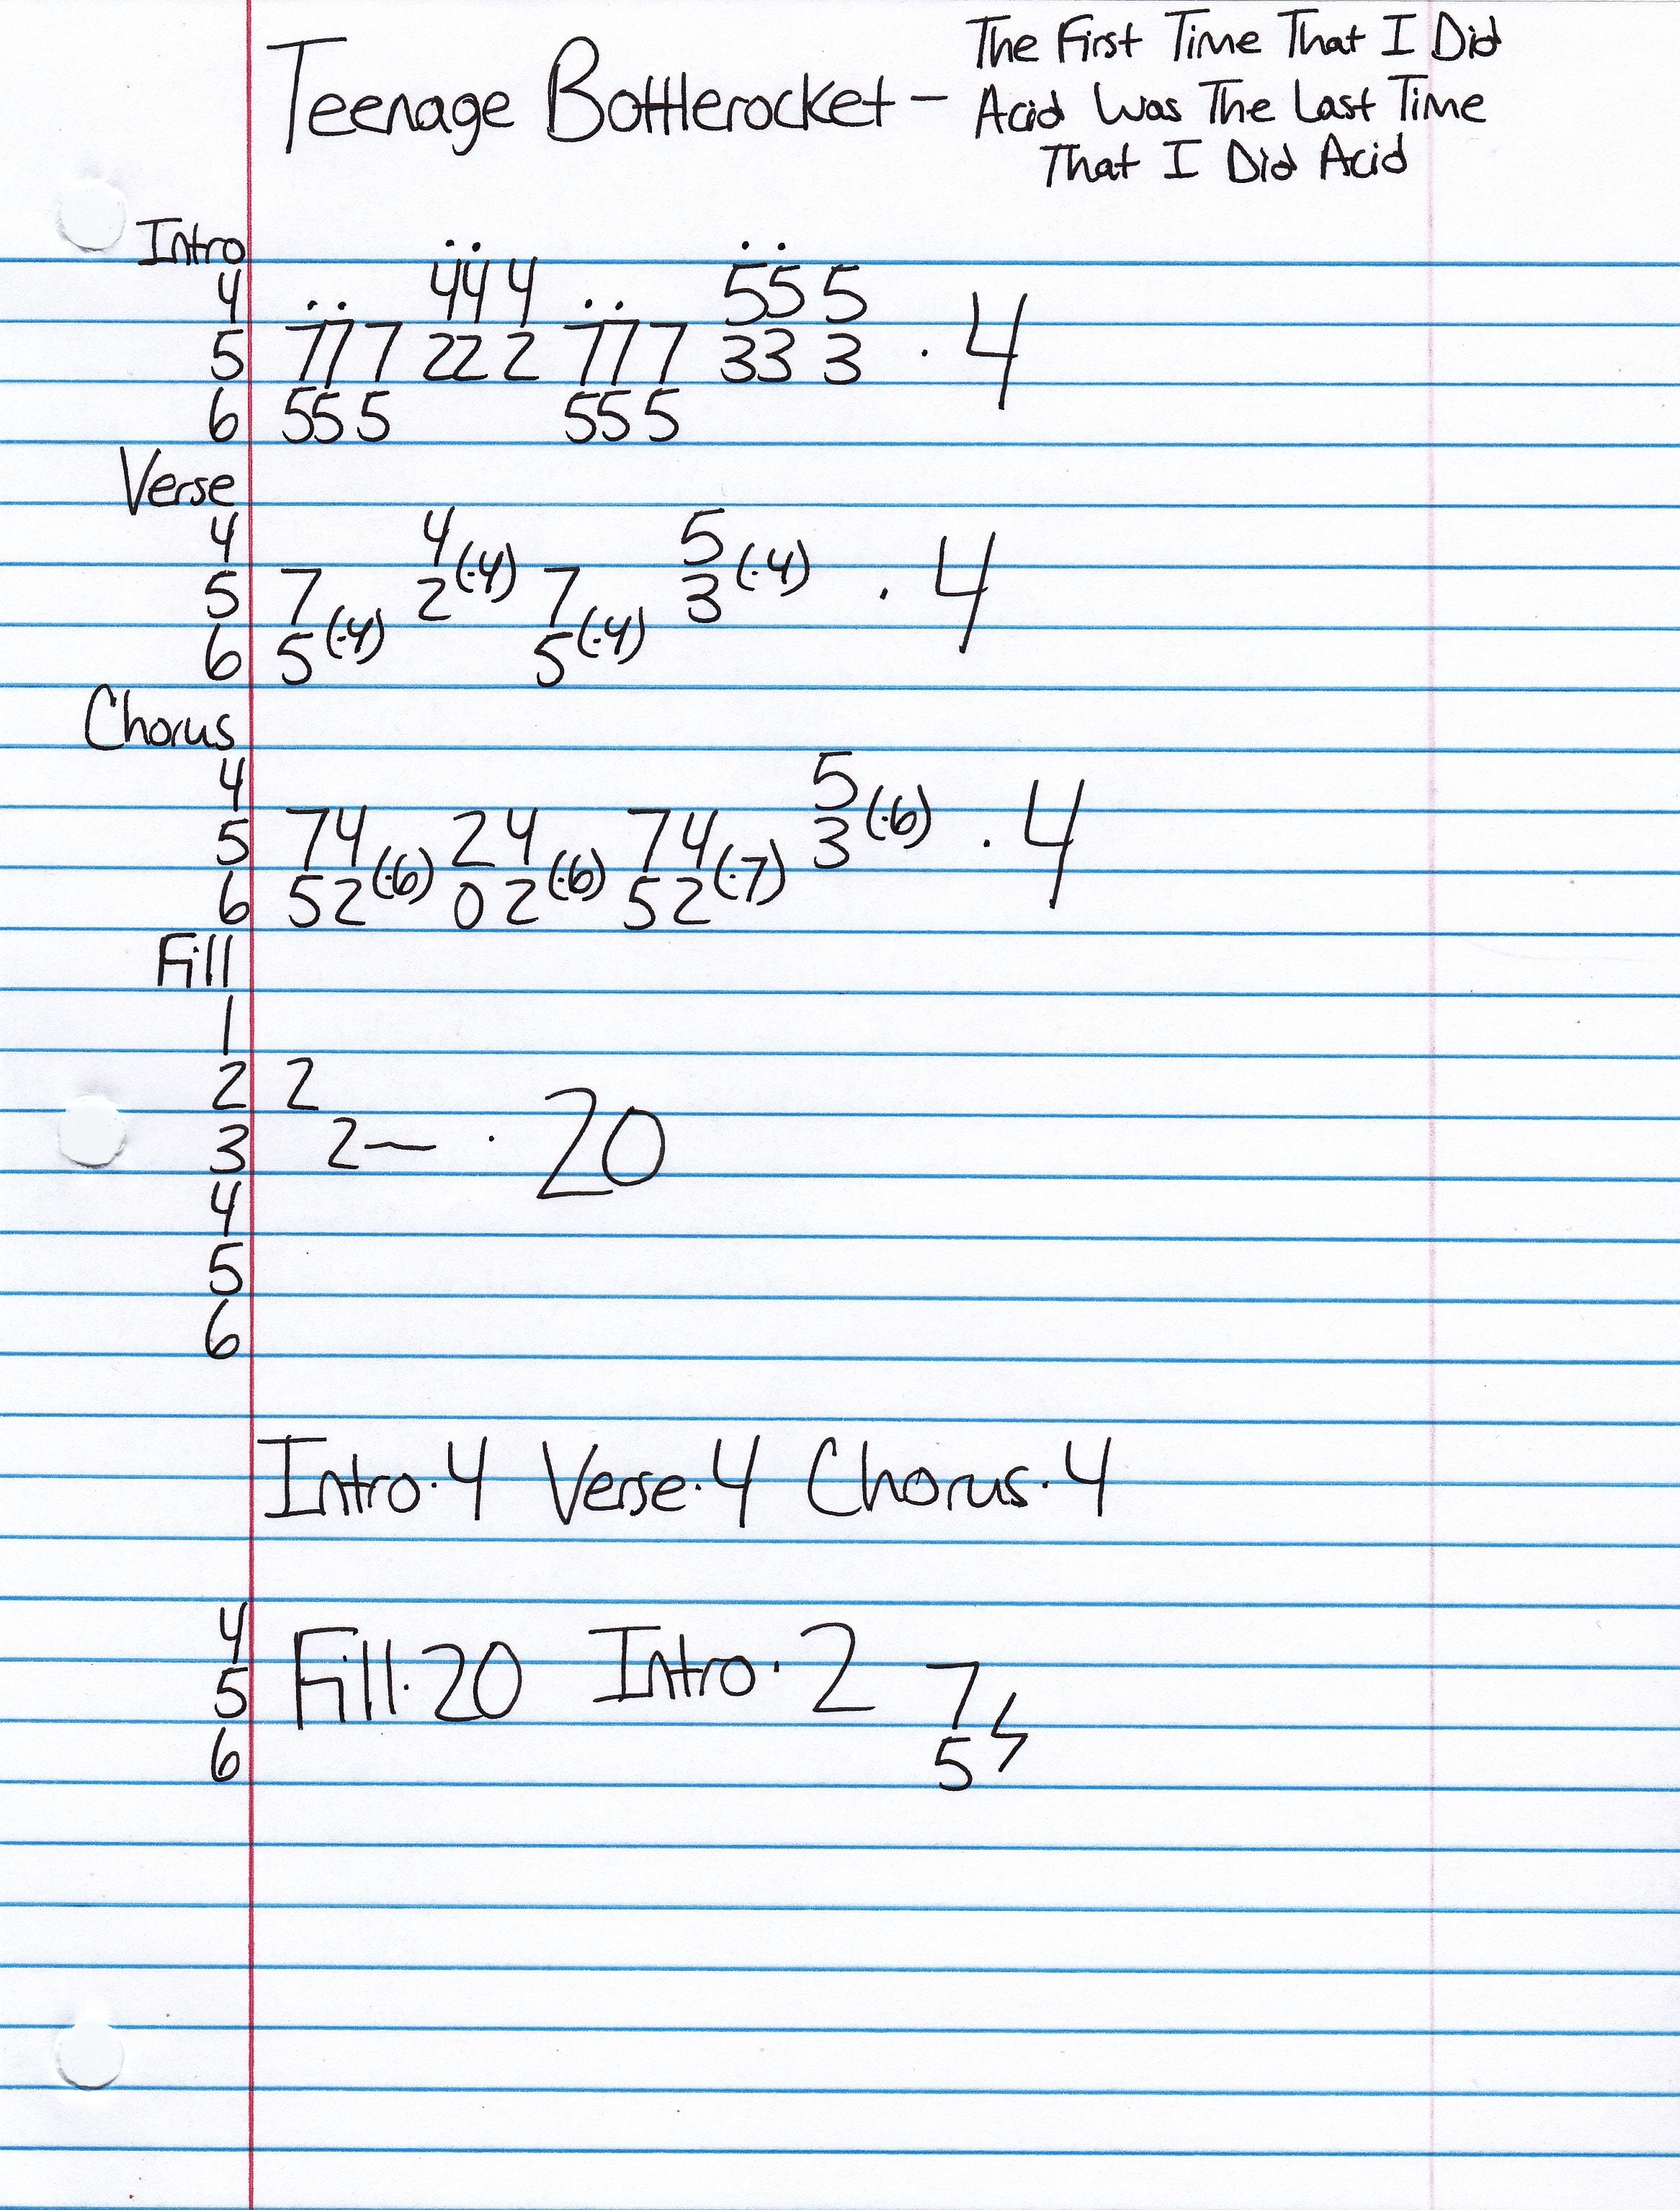 Teenage Bottlerocket - The First Time That I Did
Acid Was The Last Time
That I Did Acid
Intro
4 44 4 55 5
5 77 7 22 2 77 7 33 3 · 4
6 55 5 55 5
Verse
4 4(·4) 5(·4)
5 7 2 7 3 · 4
6 5(·4) 5(·4)
Chorus
4 5(·6)
5 74 24 74 3 · 4
6 52(·6) 02(·6) 52(·7)
Fill
1
2 2
3 2— · 20
4
5
6
Intro·4 Verse·4 Chorus·4
4
5 Fill·20 Intro·2 7
6 5